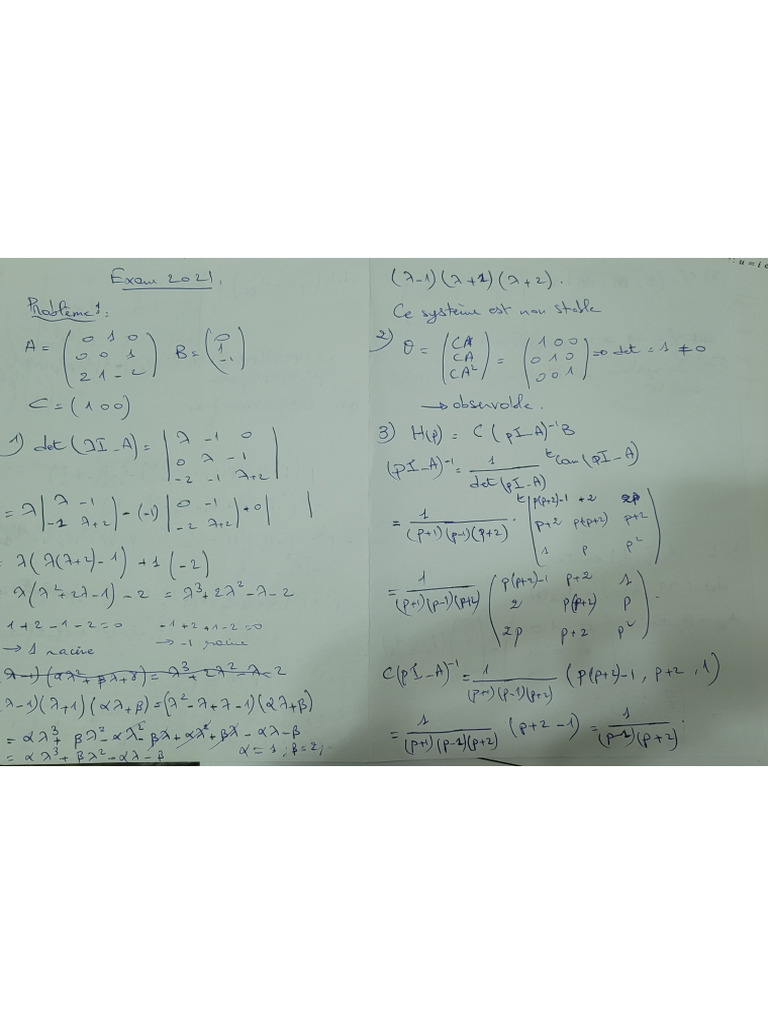 Exam 2021.
Problème 1:
A = ( 0 1 0 ; 0 0 1 ; 2 1 -2 ) B = ( 0 ; 1 ; -1 )
C = ( 1 0 0 )
1) det (λI-A) = | λ -1 0 ; 0 λ -1 ; -2 -1 λ+2 |
= λ | λ -1 ; -1 λ+2 | - (-1) | 0 -1 ; -2 λ+2 | + 0 | |
= λ(λ(λ+2)-1) + 1(-2)
λ(λ²+2λ-1) -2 = λ³+2λ²-λ-2
1+2-1-2=0 -1+2+1-2=0
→ 1 racine → -1 racine
λ-1)(αλ²+βλ+γ) = λ³+2λ²-λ-2
λ-1)(λ+1)(αλ+β) = (λ²-λ+λ-1)(αλ+β)
= αλ³+βλ²-αλ²-βλ+αλ²+βλ-αλ-β
= αλ³+βλ²-αλ-β α=1; β=2;
(λ-1)(λ+1)(λ+2).
Ce système est non stable
2) O = ( CA ; CA ; CA² ) = ( 1 0 0 ; 0 1 0 ; 0 0 1 ) => det = 1 ≠ 0
→ observable.
3) H(p) = C (pI-A)⁻¹B
(pI-A)⁻¹ = 1 / det(pI-A) ᵗCom (pI-A)
= 1 / (p+1)(p-1)(p+2) . ᵗ( p(p+2)-1 +2 2p ; p+2 p(p+2) p+2 ; 1 p p² )
= 1 / (p+1)(p-1)(p+2) ( p(p+2)-1 p+2 1 ; 2 p(p+2) p ; 2p p+2 p² ) .
C(pI-A)⁻¹ = 1 / (p+1)(p-1)(p+2) (p(p+2)-1, p+2, 1)
= 1 / (p+1)(p-1)(p+2) (p+2-1) = 1 / (p-1)(p+2) .